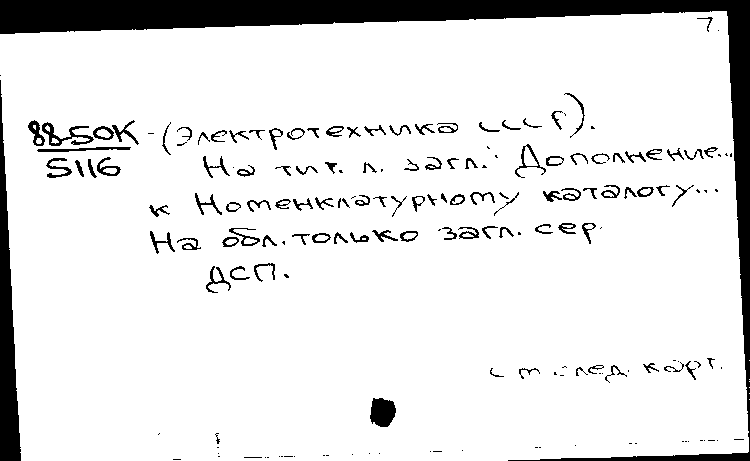 7.
88-50К - (Электротехника СССР).
5116 На тит. л. загл.: Дополнение...
к Номенклатурному каталогу...
На обл. только загл. сер.
ДСП.
см. след. карт.